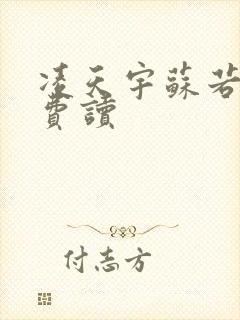 凌天宇蘇若
費讀
付志方